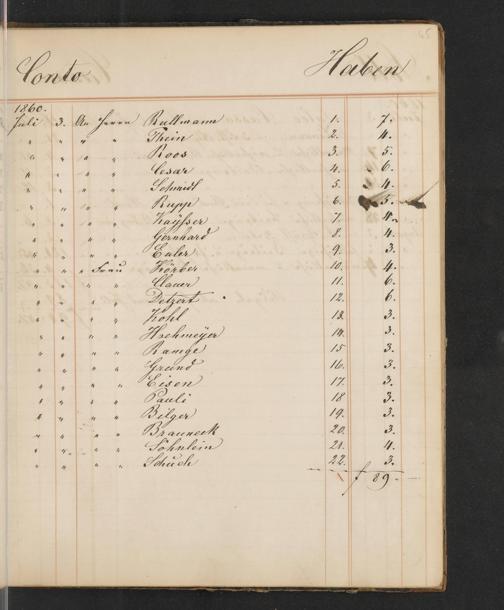 Conto Haben
1860.
Juli 3. An Herrn Rullmann 1. 7.
" " " " Thein 2. 4.
" " " " Roos 3. 5.
" " " " Cesar 4. 6.
" " " " Schmidt 5. 4.
" " " " Rupp 6. 5.
" " " " Kaÿsser 7. 4.
" " " " Gernhard 8. 4.
" " " " Euler 9. 3.
" " " Frau Körber 10. 4.
" " " " Clauer 11. 6.
" " " " Detzert 12. 6.
" " " " Kohl 13. 3.
" " " " Hochmeÿer 14. 3.
" " " " Ramge 15 3.
" " " " Grund 16. 3.
" " " " Eisen 17. 3.
" " " " Pauli 18 3.
" " " " Bilger 19. 3.
" " " " Brauneck 20. 3.
" " " " Söhnlein 21. 4.
" " " " Schuch 22. 3.
f 89.